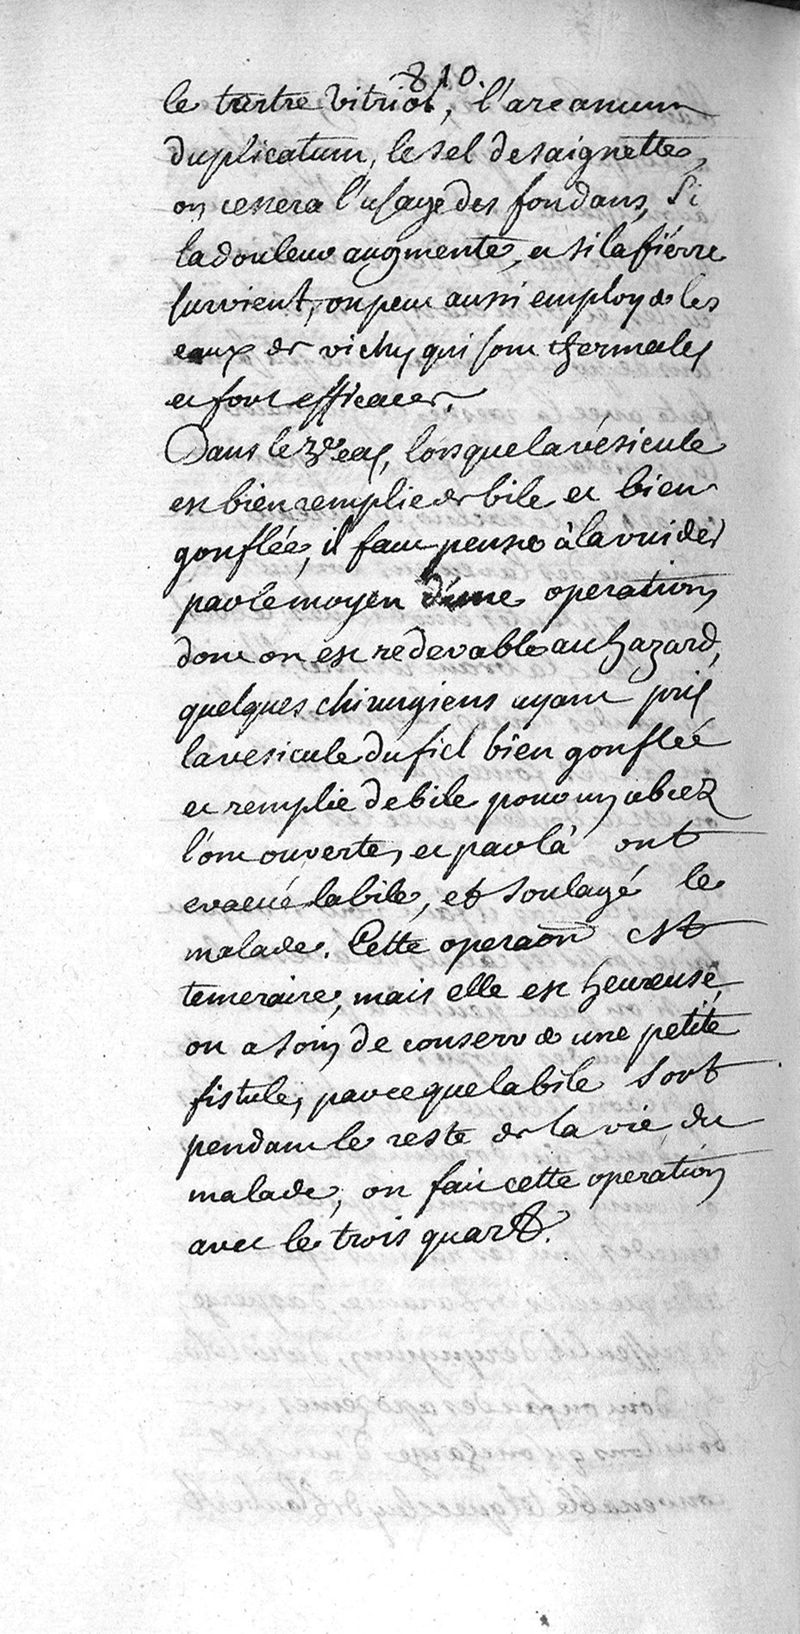 810.
le tartre vitriol, l'arcanum
duplicatum, le sel de saignette,
on cessera l'usage des fondans, Si
la douleur augmente, et si la fiévre
survient, on peut aussi employer les
eaux de vichy qui sont thermales
et fort efficaces.
Dans le 3e cas, lorsque la vésicule
est bien remplie de bile et bien
gonflée, il faut penser à la vuider
par le moyen d'une operation
dont on est redevable au hazard,
quelques chirurgiens ayant pris
la vesicule du fiel bien gonflée
et remplie de bile pour un abcez
l'ont ouverte, et par là ont
evacué la bile, et soulagé le
malade. Cette operaon est
temeraire, mais elle est heureuse,
on a soin de conserver une petite
fistule, parceque la bile sort
pendant le reste de la vie du
malade, on fait cette operation
avec le trois quart.